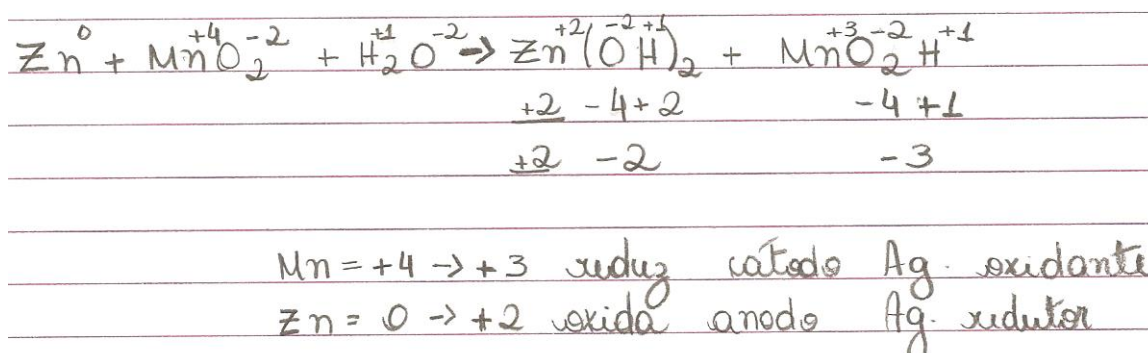 Zn⁰ + Mn⁺⁴O₂⁻² + H₂⁺¹O⁻² → Zn⁺²(O⁻²H⁺¹)₂ + Mn⁺³O₂⁻²H⁺¹
+2 - 4 + 2 - 4 + 1
+2 - 2 - 3
Mn = +4 → +3 reduz catodo Ag. oxidante
Zn = 0 → +2 oxida anodo Ag. redutor